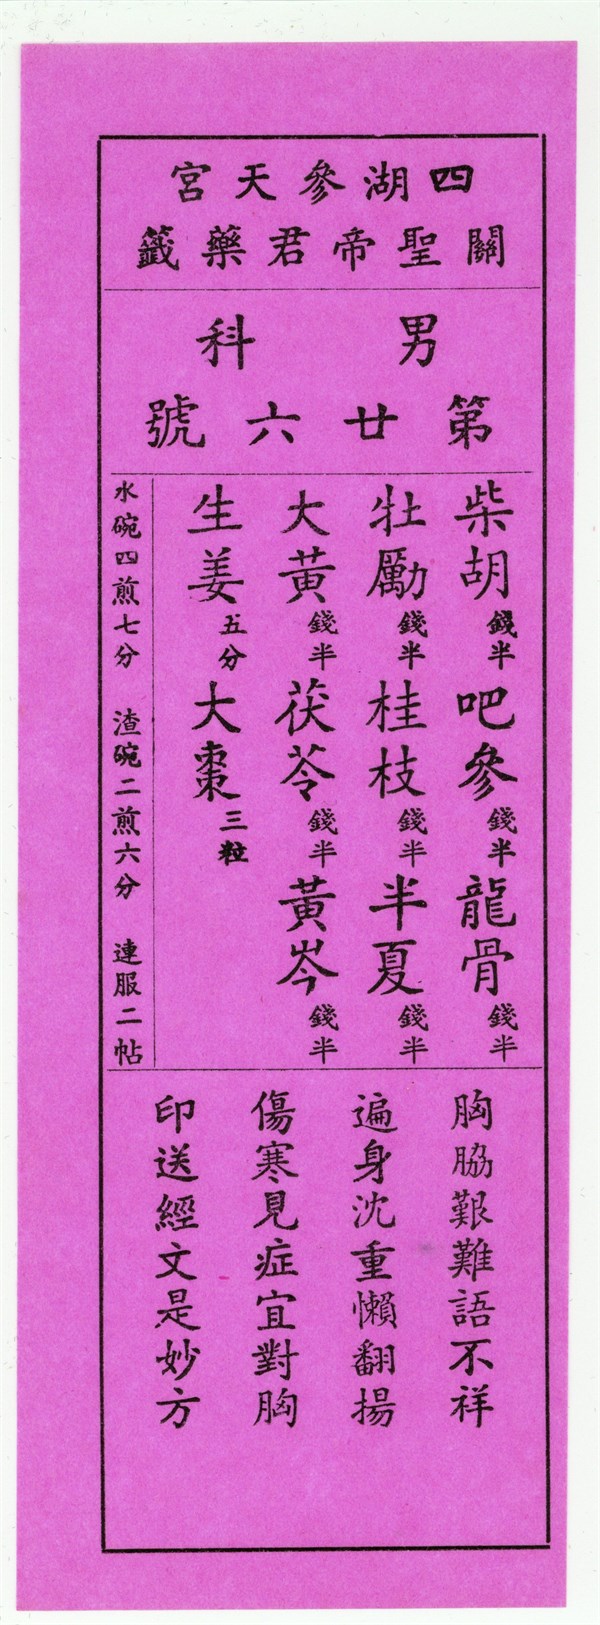 四湖參天宮
關聖帝君藥籤
男科
第廿六號
柴胡錢半 吧參錢半 龍骨錢半
牡勵錢半 桂枝錢半 半夏錢半
大黃錢半 茯苓錢半 黃岑錢半
生姜五分 大棗三粒
水碗四煎七分 渣碗二煎六分 連服二帖
胸脇艱難語不祥
遍身沈重懶翻揚
傷寒見症宜對胸
印送經文是妙方